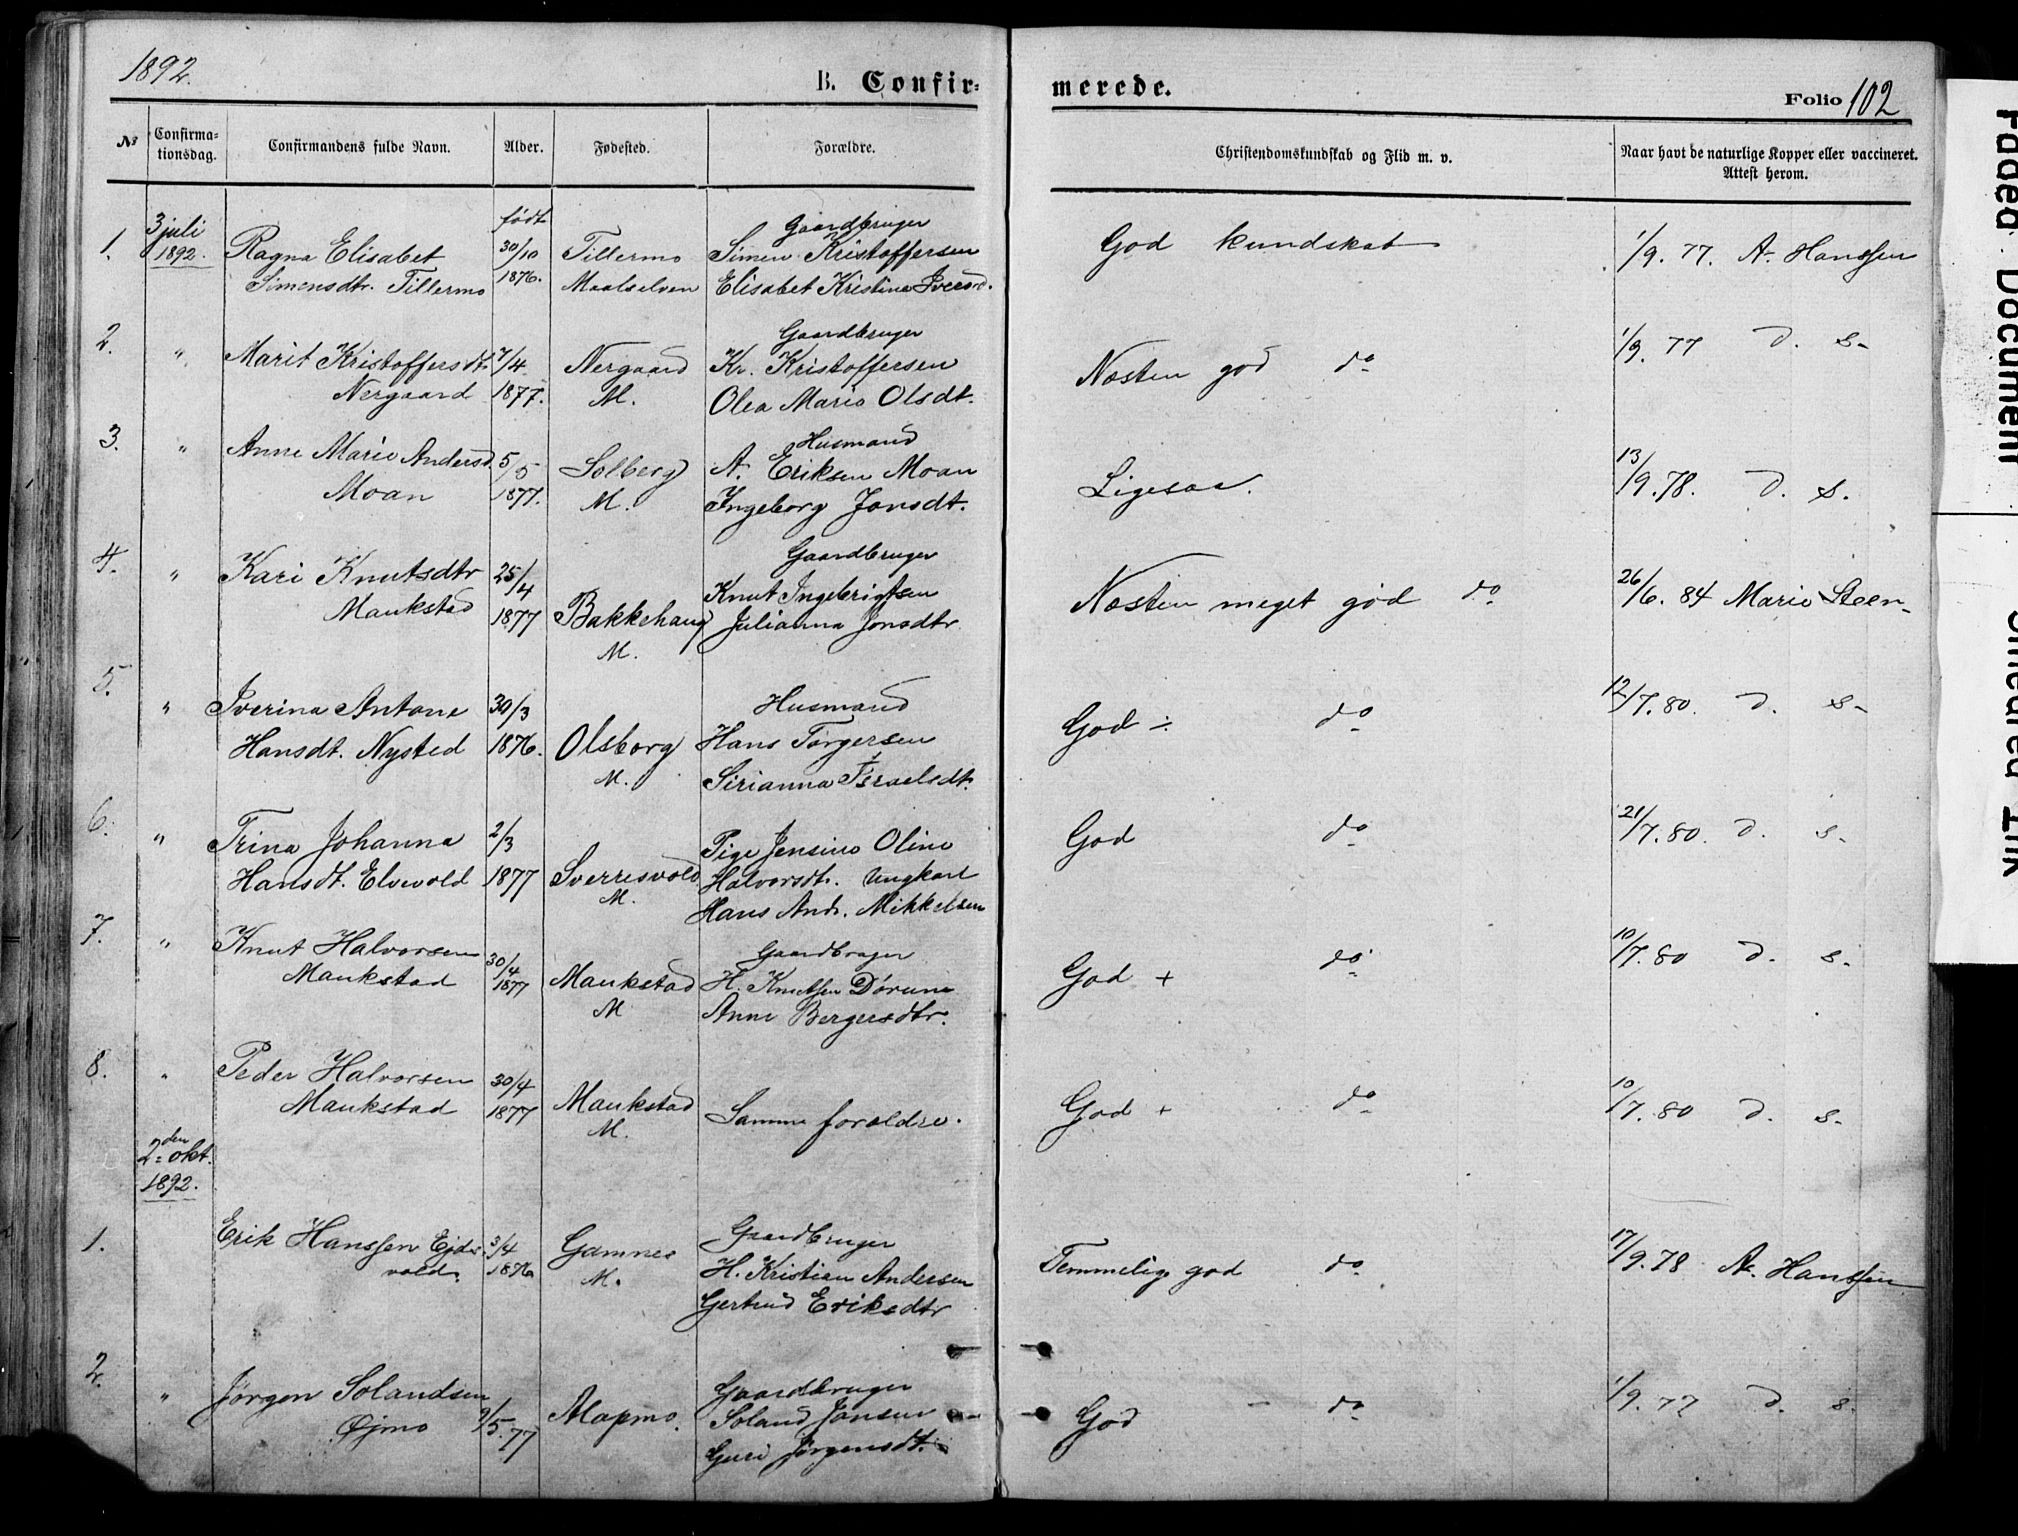 1892.
B. Confir-
merede.
Folio 102
№
Confirma-
tionsdag.
Confirmandens fulde Navn.
Alder.
Fødested.
Forældre.
Christendomskundskab og Flid m. v.
Naar havt de naturlige Kopper eller vaccineret.
Attest herom.
1.
3 juli
1892.
Ragna Elisabet
Simensdtr. Tillermo
født
30/10
1876.
Tillermo
Maalselven
Gaardbruger
Simen Kristoffersen
Elisabet Kristine Iversd.
God kundskab
1/9. 77. A. Hanssen
2.
"
Marit Kristoffersdt.
Nergaard
7/4
1877.
Nergaard
M.
Gaardbruger
Kr. Kristoffersen
Olea Marie Olsdt.
Næsten god do
1/9. 77 d. s.
3.
"
Anne Marie Andersd.
Moan
5/5
1877.
Solberg
M.
Husmand
A. Eriksen Moan
Ingeborg Jonsdt.
Ligesaa.
13/9. 78. d. s.
4.
"
Kari Knutsdtr
Maukstad
25/4
1877
Bakkehaug
M.
Gaardbruger
Knut Ingebrigtsen
Julianna Jonsdtr.
Næsten meget god do
26/6. 84 Marie Steen
5.
"
Iverina Antone
Hansdt. Nysted
30/3
1876.
Olsborg
M.
Husmand
Hans Torgersen
Sirianna Israelsdt.
God ÷ do
12/7. 80. d. s.
6.
"
Trina Johanna
Hansdt. Elvevold
2/3
1877
Sverresvold
M.
Pige Jensine Oline
Halvorsdt. Ungkarl
Hans Andr. Mikkelsen
God do
21/7. 80. d. s.
7.
"
Knut Halvorsen
Maukstad
30/4
1877
Maukstad
M
Gaardbruger
H. Knutsen
Anne Bergersdtr.
God + do
10/7. 80 d. s.
8.
"
Peder Halvorsen
Maukstad
30/4
1877
Maukstad
M.
Samme forældre.
God + do
10/7. 80 d. s.
2den okt.
1892.
1.
Erik Hanssen Ejds-
vold.
3/4
1876
Gamnes
M.
Gaardbruger
H. Kristian Andersen
Gertrud Eriksdtr
Temmelig god do
17/9. 78 A. Hanssen
2.
"
Jørgen Solandsen
Øjmo
9/5. 77
Alapmo.
Gaardbruger
Soland Jonsen
Guri Jørgensdt.
God do
1/9. 77 d. s.
Faded Document
Smeared Ink